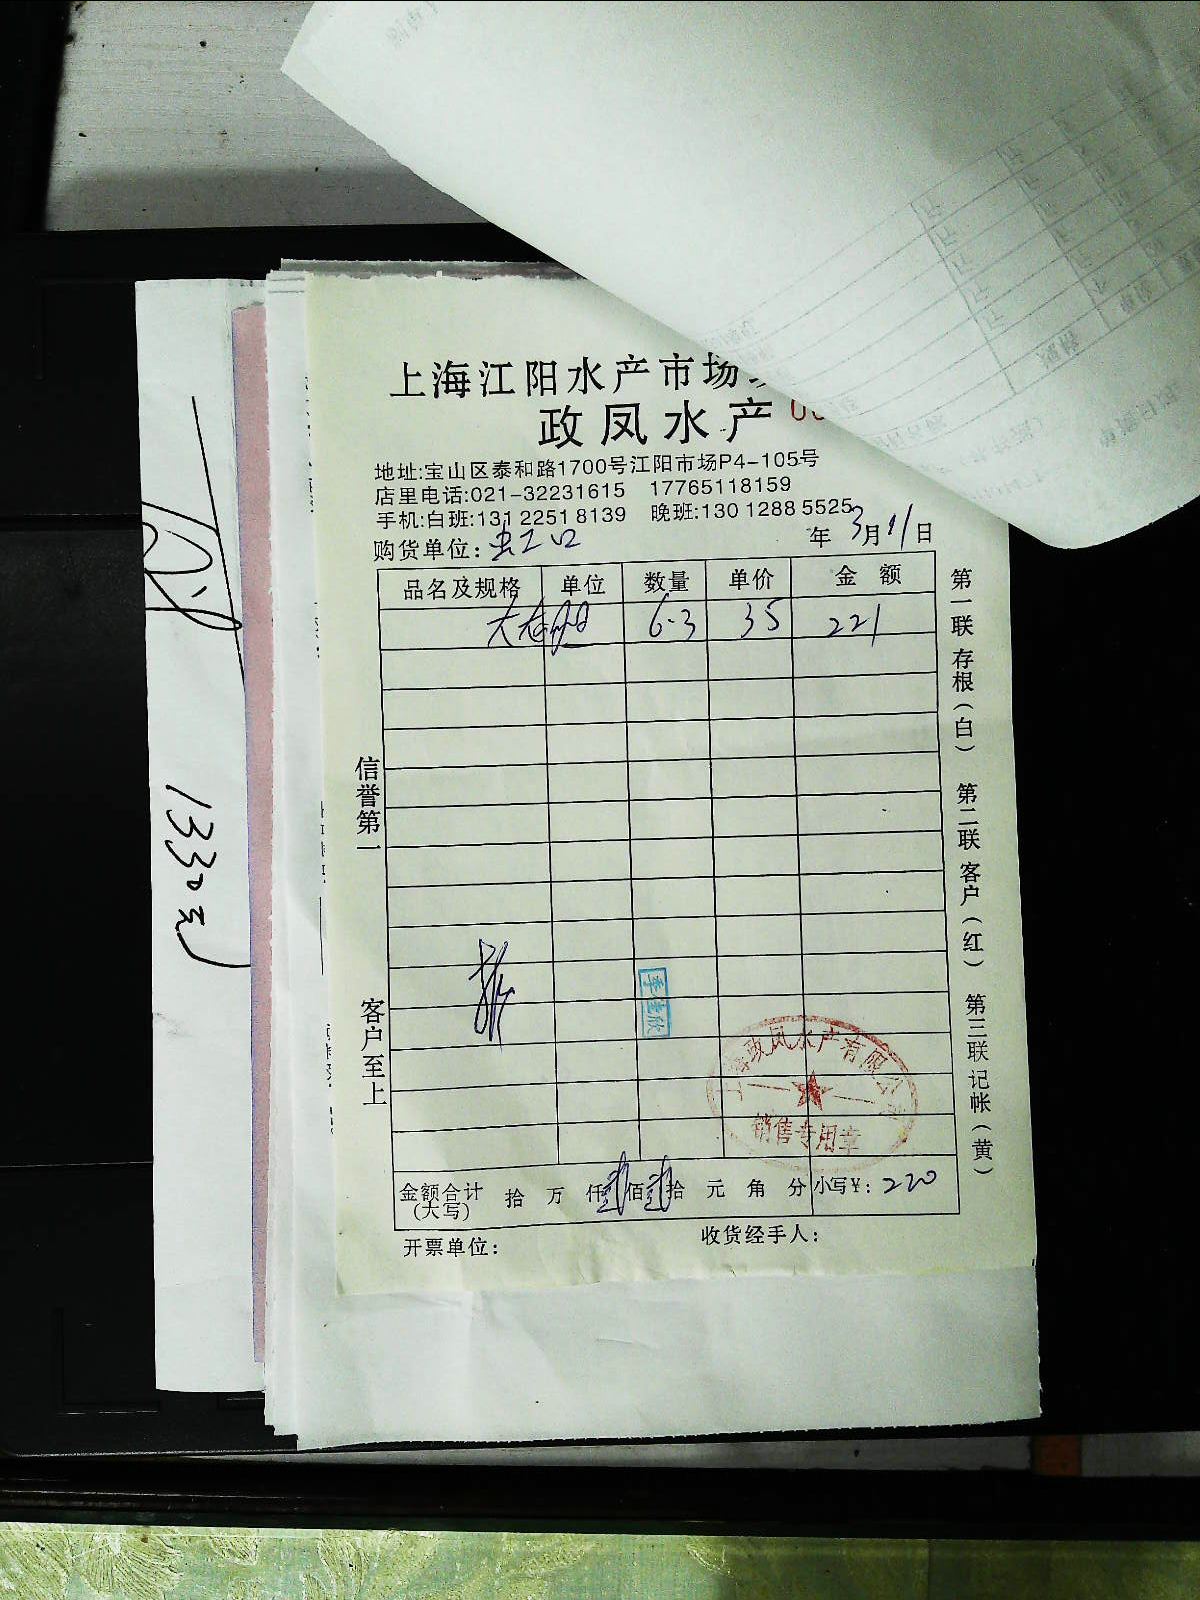 上海江阳水产市场
政凤水产
地址:宝山区泰和路1700号江阳市场P4-105号
店里电话:021-32231615 17765118159
手机:白班:131 2251 8139 晚班:130 1288 5525
购货单位: 虹口 年 3月11日
品名及规格 单位 数量 单价 金额
6.3 35 221
信誉第一
客户至上
李佳欣
上海政凤水产有限公司
销售专用章
金额合计(大写) 拾 万 仟 贰 佰 贰 拾 元 角 分 小写¥: 220
开票单位: 收货经手人:
第一联 存根(白) 第二联 客户(红) 第三联 记帐(黄)
1330元